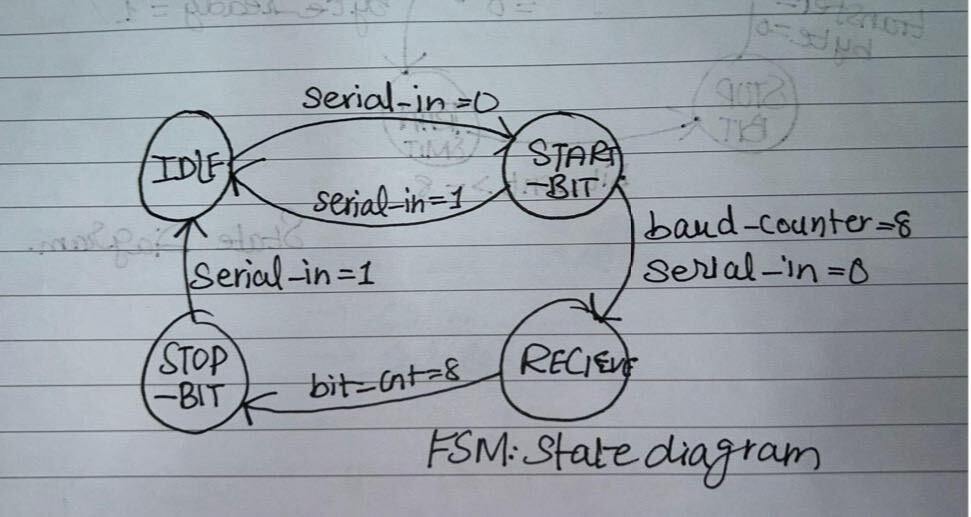 serial-in=0
IDLE
START
-BIT
serial-in=1
baud-counter=8
serial-in=0
Serial-in=1
STOP
-BIT
bit-cnt=8
RECIEVE
FSM: State diagram